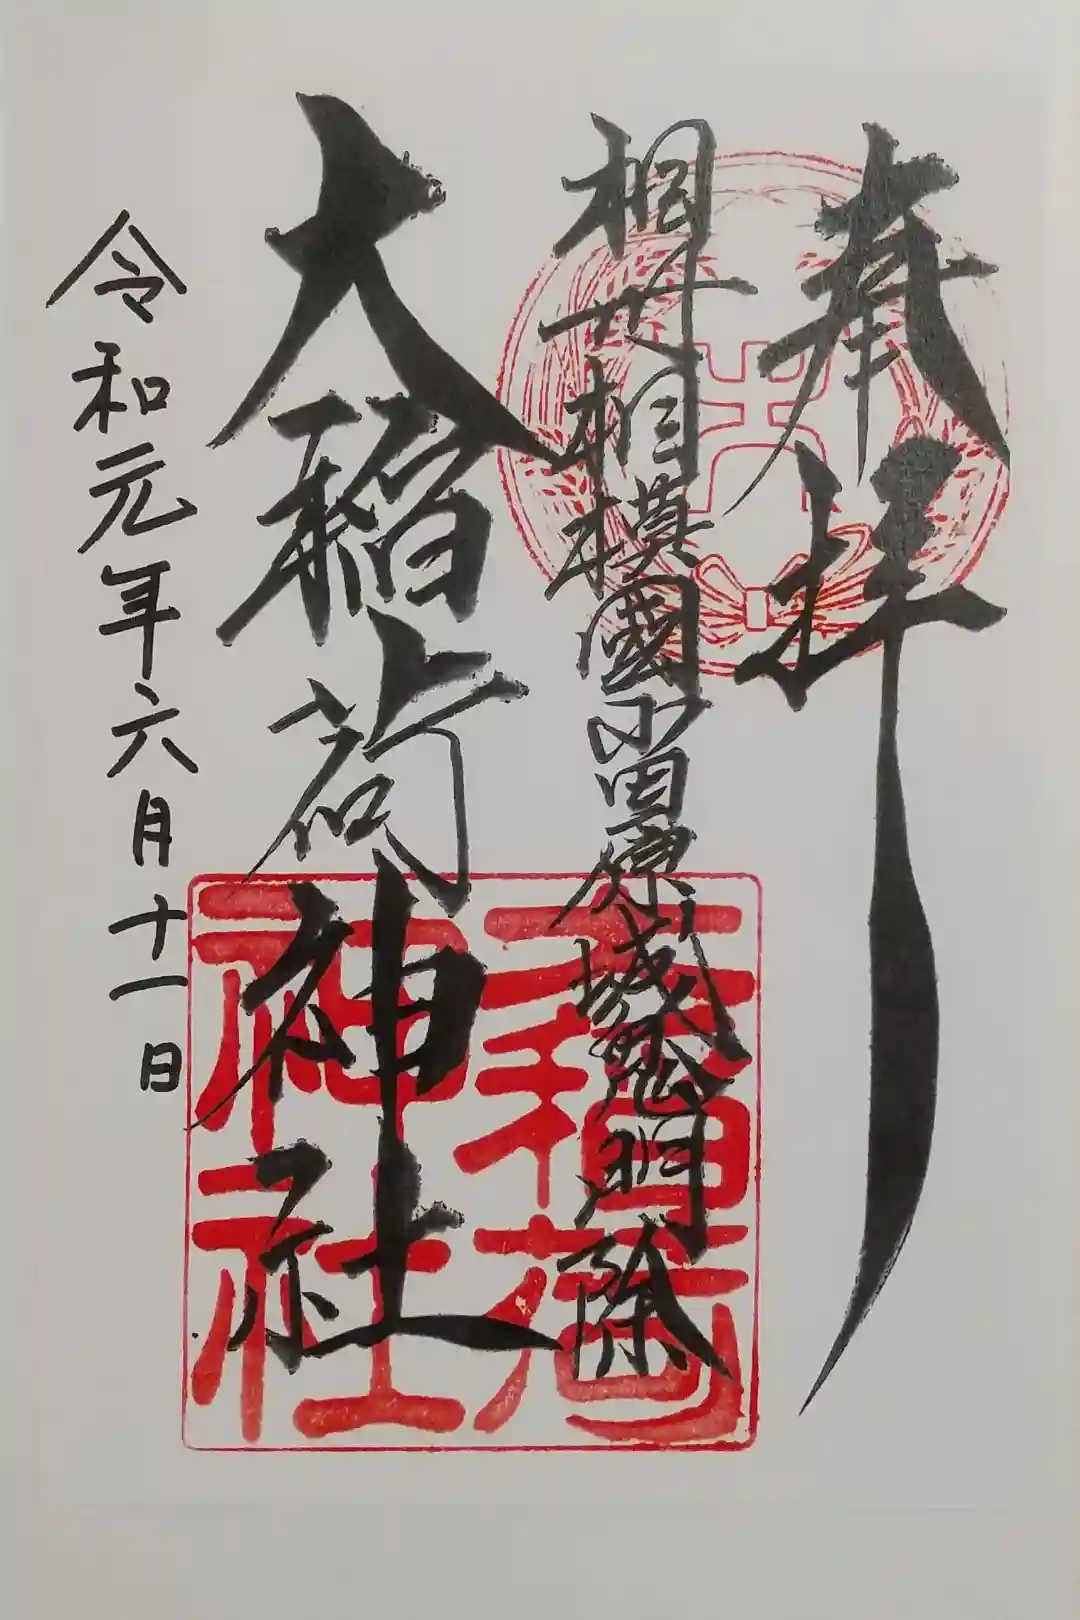 奉拝
相州 相模國小田原城鬼門除
大稲荷神社
令和元年六月十一日
大稲荷
神社